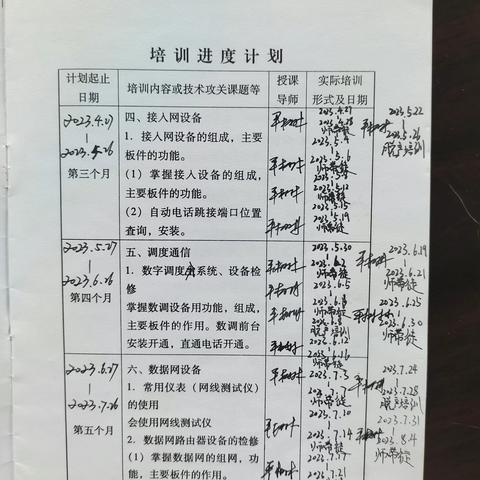 培训进度计划
计划起止日期
培训内容或技术攻关课题等
授课导师
实际培训形式及日期
2023.4.27
|
2023.5.26
第三个月
四、接入网设备
1. 接入网设备的组成，主要
板件的功能。
（1）掌握接入设备的组成，
主要板件的功能。
（2）自动电话跳接端口位置
查询，安装。
2023.4.27
2023.4.28
师带徒
2023.5.4
2023.5.6
师带徒
2023.5.12
2023.5.15
2023.5.19
师带徒
2023.5.22
|
2023.5.26
脱产培训
2023.5.27
|
2023.6.26
第四个月
五、调度通信
1. 数字调度系统、设备检
修
掌握数调设备用功能，组成，
主要板件的作用。数调前台
安装开通，直通电话开通。
2023.5.30
2023.6.2
师带徒
2023.6.5
2023.6.8
师带徒
脱产培训
2023.6.12
2023.6.16
师带徒
2023.6.19
|
2023.6.21
师带徒
2023.6.25
2023.6.30
师带徒
2023.6.27
|
2023.7.26
第五个月
六、数据网设备
1. 常用仪表（网线测试仪）
的使用
会使用网线测试仪
2. 数据网路由器设备的检修
（1）掌握数据网的组网，功
能，主要板件的作用。
2023.7.3
师带徒
2023.7.10
2023.7.14
师带徒
2023.7.17
2023.7.21
2023.7.24
|
2023.7.28
脱产培训
2023.7.31
2023.8.4
师带徒